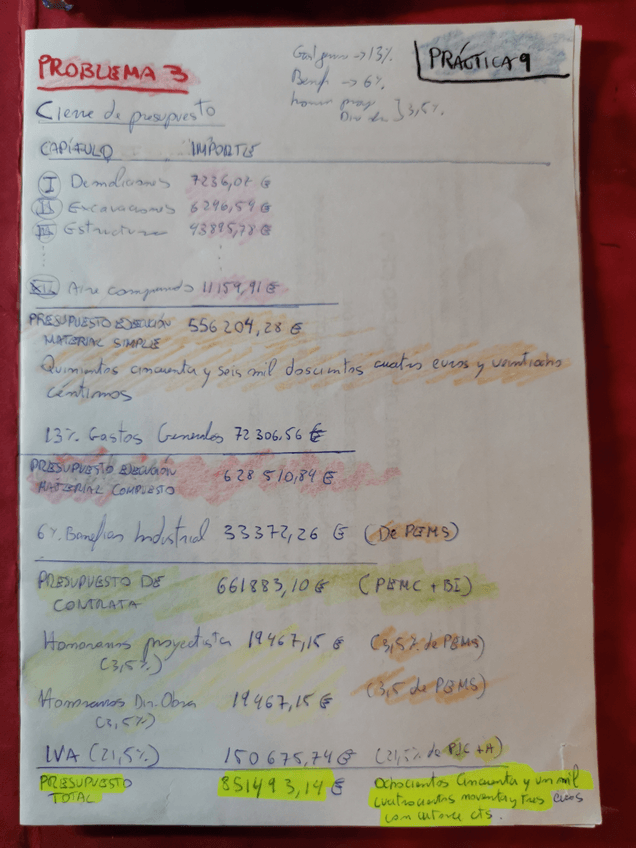 Gast gener → 13%
PRÁCTICA 9
PROBLEMA 3
Benef → 6%
honor proy
Dir du } 3,5%
Cierre de presupuesto
CAPÍTULO IMPORTE
I Demoliciones 7236,07 €
II Excavaciones 6296,59 €
III Estructura 43895,78 €
XII Aire comprimido 11159,91 €
PRESUPUESTO EJECUCIÓN 556204,28 €
MATERIAL SIMPLE
Quinientos cincuenta y seis mil doscientos cuatro euros y veintiocho
céntimos
13% Gastos Generales 72306,56 €
PRESUPUESTO EJECUCIÓN 628510,84 €
MATERIAL COMPLETO
6% Beneficio Industrial 33372,26 € (De PEMS)
PRESUPUESTO DE 661883,10 € (PEMC + BI)
CONTRATA
Honorarios proyectista 19467,15 € (3,5% de PEMS)
(3,5%)
Honorarios Dir. Obra 19467,15 € (3,5 de PEMS)
(3,5%)
IVA (21,5%) 150675,74 € (21,5% de +A)
PRESUPUESTO 851493,14 € Ochocientos cincuenta y un mil
TOTAL cuatrocientos noventa y tres euros
con catorce cts.